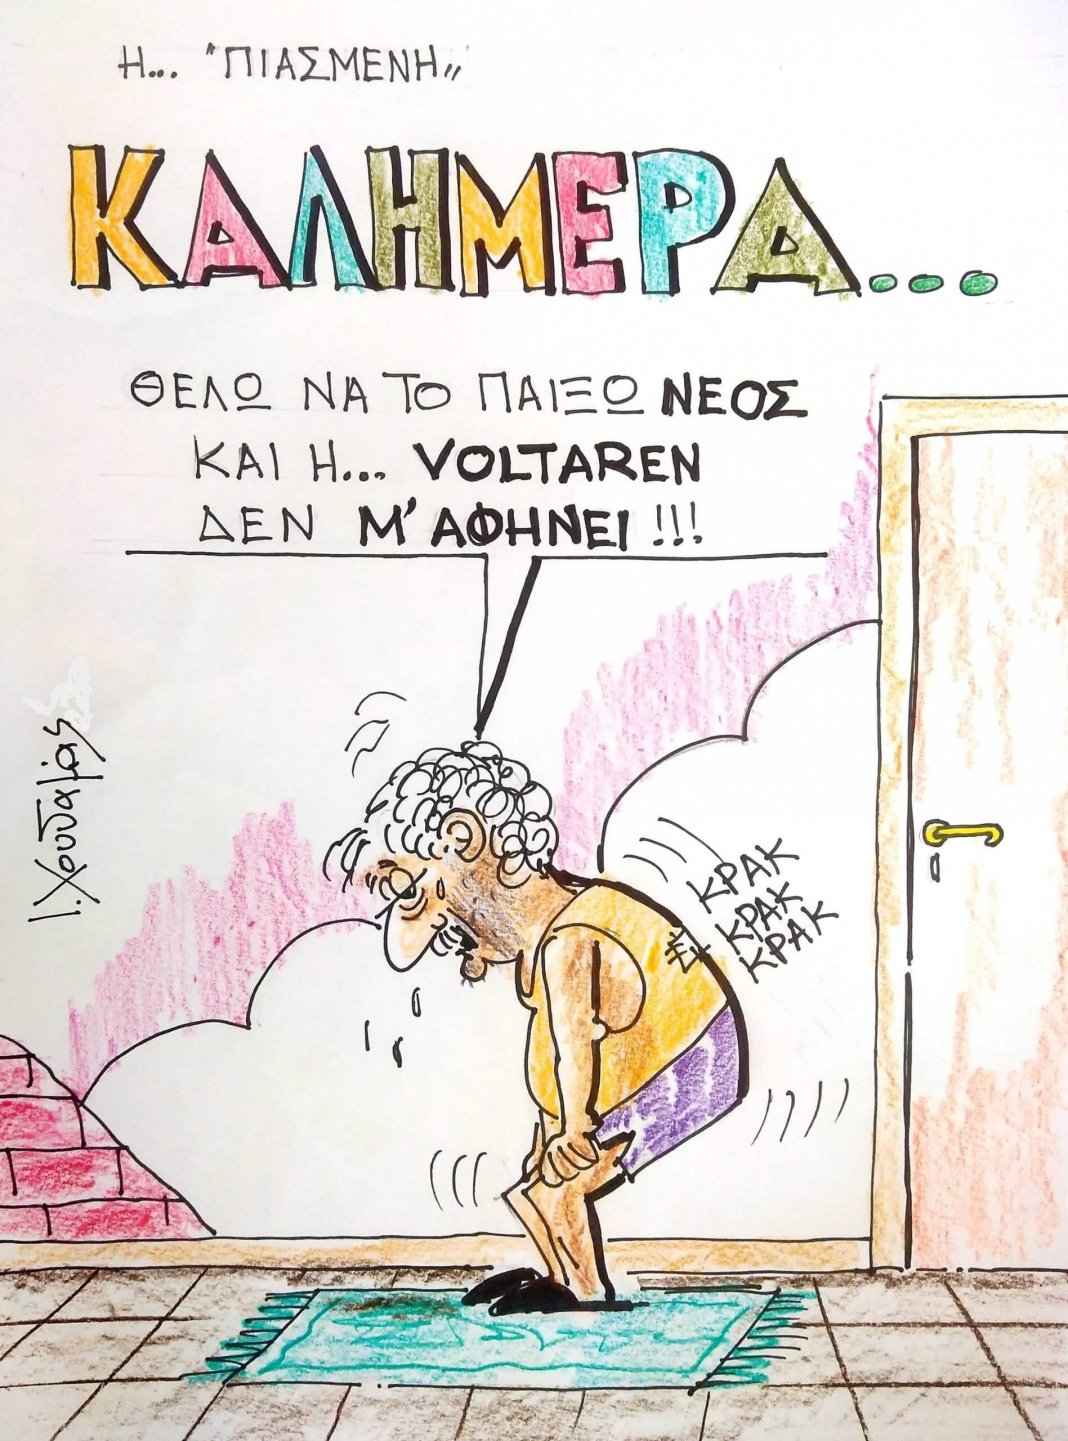 Η... "ΠΙΑΣΜΕΝΗ„
ΚΑΛΗΜΕΡΑ...
ΘΕΛΩ ΝΑ ΤΟ ΠΑΙΞΩ ΝΕΟΣ
ΚΑΙ Η... VOLTAREN
ΔΕΝ Μ'ΑΦΗΝΕΙ!!!
ΚΡΑΚ
ΚΡΑΚ
ΚΡΑΚ
Ι.Χουδαλάς